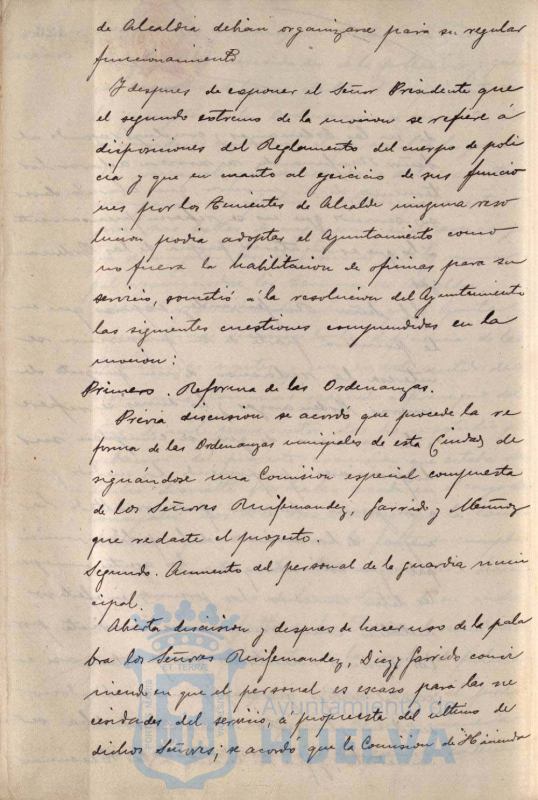 de Alcaldia debian organizarse para su regular
funcionamiento
Y despues de esponer el Señor Presidente que
el segundo estremo de la mocion se refiere á
disposiciones del Reglamento del cuerpo de poli
cia y que en cuanto al ejercicio de sus funcio
nes por los Tenientes de Alcalde ninguna reso
lucion podia adoptar el Ayuntamiento como
no fuera la habilitacion de oficinas para su
servicio, sometió á la resolucion del Ayuntamiento
las siguientes cuestiones comprendidas en la
mocion:
Primero. Reforma de las Ordenanzas.
Previa discusion se acordó que procede la re
forma de las Ordenanzas municipales de esta Ciudad, de
signándose una Comision especial compuesta
de los Señores Ruifernandez, Garrido y Muñoz
que redacte el proyecto.
Segundo. Aumento del personal de la guardia muni
cipal.
Abierta discusion y despues de hacer uso de la pala
bra los Señores Ruifernandez, Diaz y Garrido convi
niendo en que el personal es escaso para las ne
cesidades del servicio, á propuesta del último de
dichos Señores, se acordó que la Comision de Hacienda
Ayuntamiento de
HUELVA